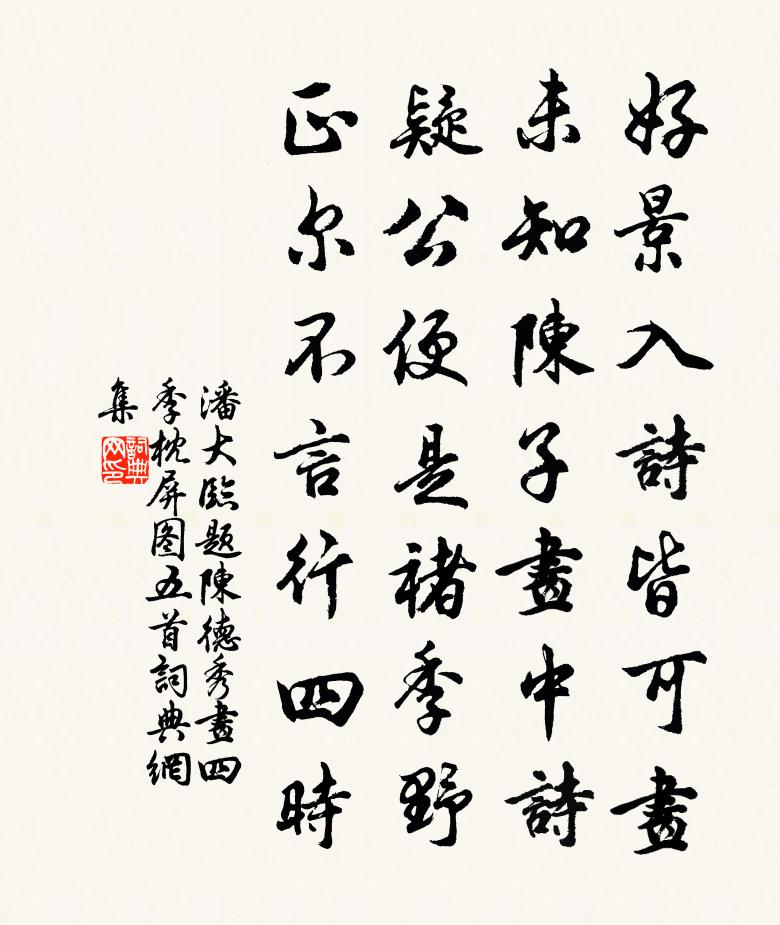 好景入詩皆可畫
未知陳子畫中詩
疑公便是褚季野
正尔不言行四時
潘大臨題陳德秀畫四
季枕屏图五首詞典網
集
詞典网印